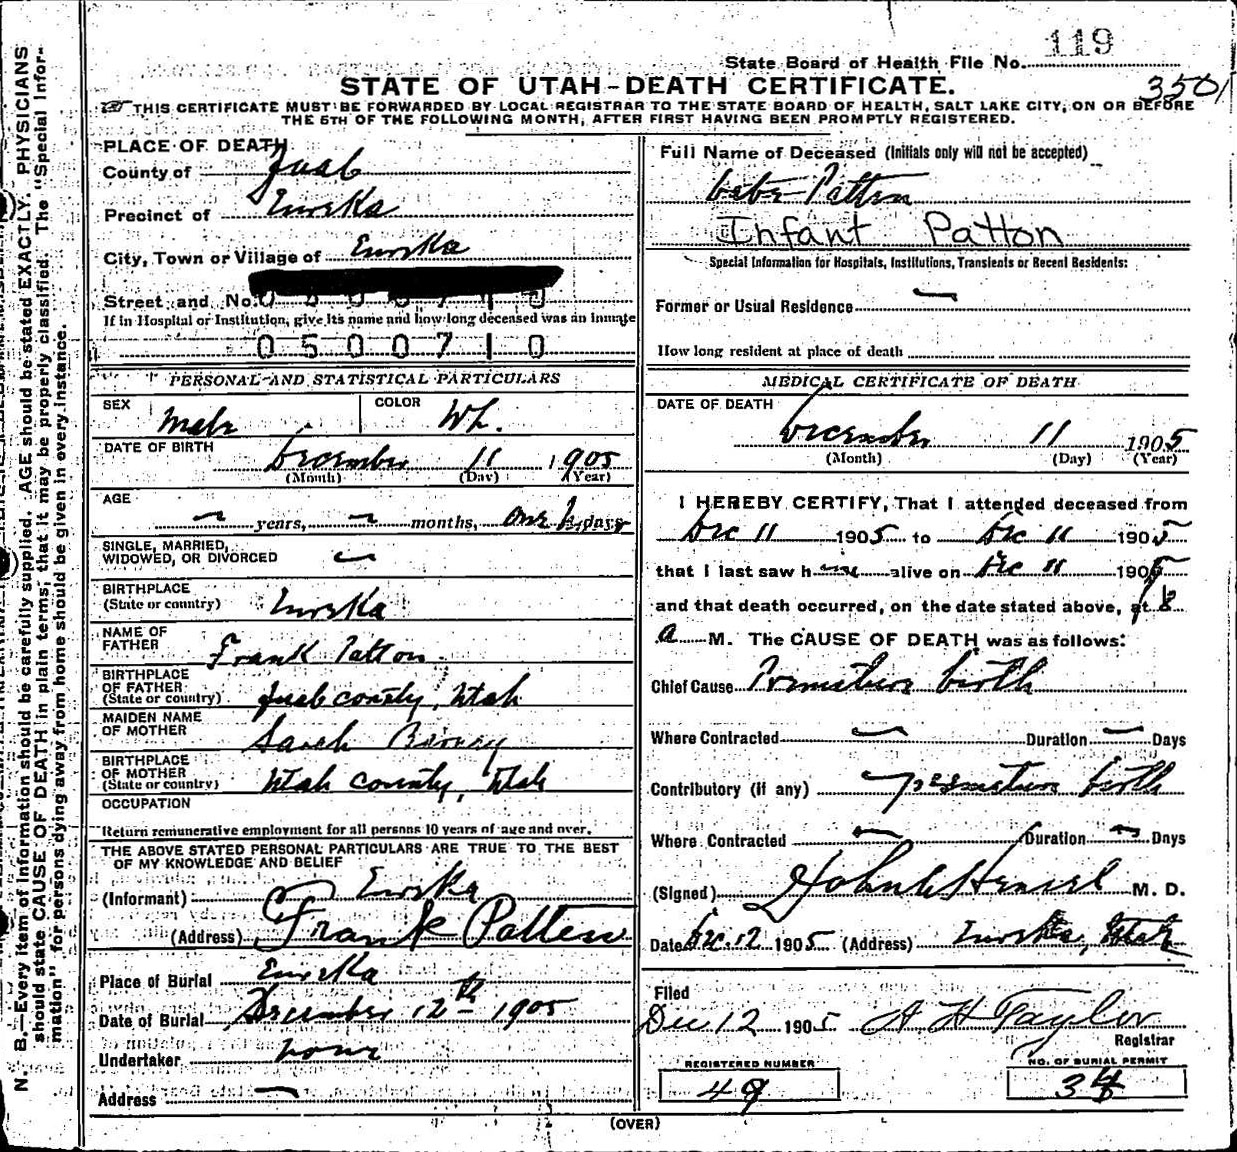 119
State Board of Health File No.
3501
STATE OF UTAH-DEATH CERTIFICATE.
THIS CERTIFICATE MUST BE FORWARDED BY LOCAL REGISTRAR TO THE STATE BOARD OF HEALTH, SALT LAKE CITY, ON OR BEFORE
THE 5TH OF THE FOLLOWING MONTH, AFTER FIRST HAVING BEEN PROMPTLY REGISTERED.
N. B.—Every item of information should be carefully supplied. AGE should be stated EXACTLY. PHYSICIANS
should state CAUSE OF DEATH in plain terms, that it may be properly classified. The "Special Infor-
mation" for persons dying away from home should be given in every instance.
PLACE OF DEATH
County of Juab
Precinct of Eureka
City, Town or Village of Eureka
Street and No.
If in Hospital or Institution, give its name and how long deceased was an inmate
0500710
PERSONAL AND STATISTICAL PARTICULARS
SEX Male COLOR Wh.
DATE OF BIRTH
December 11 1905
(Month) (Day) (Year)
AGE
— years, — months, one h. days
SINGLE, MARRIED,
WIDOWED, OR DIVORCED —
BIRTHPLACE
(State or country) Eureka
NAME OF
FATHER Frank Patton
BIRTHPLACE
OF FATHER
(State or country) Juab county, Utah
MAIDEN NAME
OF MOTHER Sarah
BIRTHPLACE
OF MOTHER
(State or country) Utah county, Utah
OCCUPATION
Return remunerative employment for all persons 10 years of age and over.
THE ABOVE STATED PERSONAL PARTICULARS ARE TRUE TO THE BEST
OF MY KNOWLEDGE AND BELIEF
(Informant) Eureka
(Address) Frank Patten
Place of Burial Eureka
Date of Burial December 12th 1905
Undertaker none
Address —
Full Name of Deceased (Initials only will not be accepted)
Patten
Infant Patton
Special Information for Hospitals, Institutions, Transients or Recent Residents:
Former or Usual Residence —
How long resident at place of death
MEDICAL CERTIFICATE OF DEATH
DATE OF DEATH
December 11 1905
(Month) (Day) (Year)
I HEREBY CERTIFY, That I attended deceased from
Dec 11 1905 to Dec 11 1905
that I last saw h alive on Dec 11 1905
and that death occurred, on the date stated above, at 8
a M. The CAUSE OF DEATH was as follows:
Chief Cause Premature birth
Where Contracted — Duration — Days
Contributory (if any) premature birth
Where Contracted — Duration — Days
(Signed) John M. D.
Date Dec. 12 1905 (Address) Eureka, Utah
Filed
Dec 12 1905 A H Taylor
Registrar
REGISTERED NUMBER
49
NO. OF BURIAL PERMIT
34
(OVER)